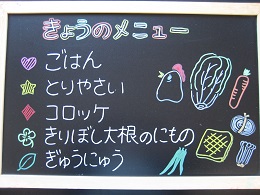 きょうのメニュー
ごはん
とりやさい
コロッケ
きりぼし大根のにもの
ぎゅうにゅう